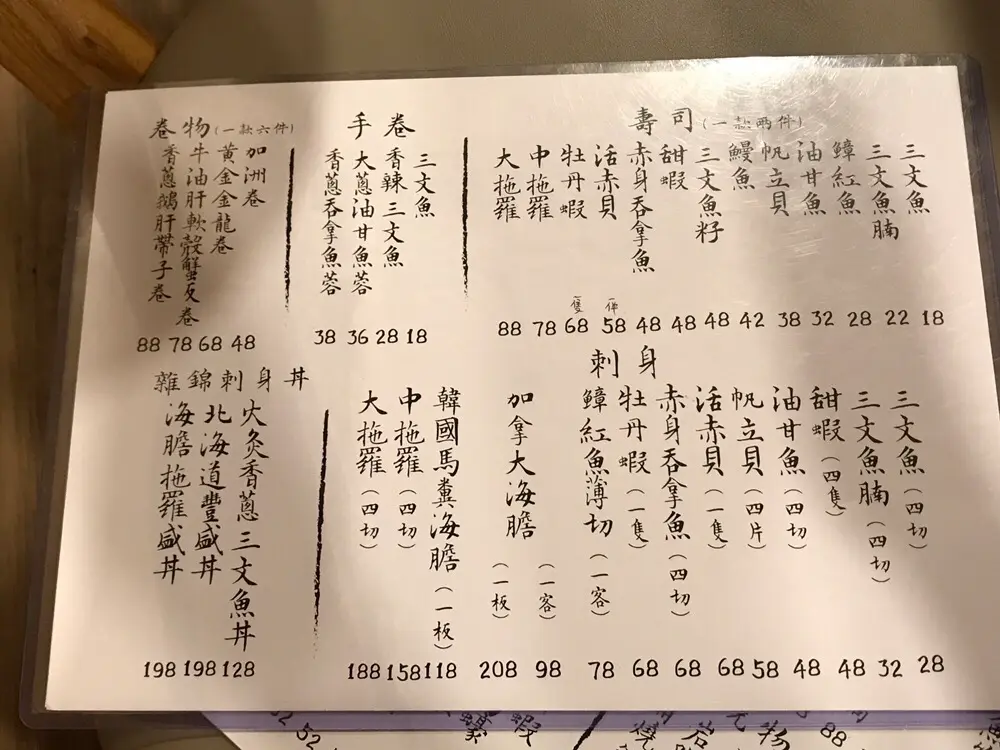 壽司(一款两件)
三文魚 18
三文魚腩 22
鱆紅魚 28
油甘魚 32
帆立貝 38
鰻魚 42
三文魚籽 48
甜蝦 48
赤身吞拿魚 48
活赤貝 一件 58
牡丹蝦 一隻 68
中拖羅 78
大拖羅 88
手卷
三文魚 18
香辣三文魚 28
大蔥油甘魚蓉 36
香蔥吞拿魚蓉 38
卷物(一款六件)
加洲卷 48
黃金金龍卷 68
牛油肝軟殼蟹反卷 78
香蔥鵝肝帶子卷 88
刺身
三文魚(四切) 28
三文魚腩(四切) 32
甜蝦(四隻) 48
油甘魚(四切) 48
帆立貝(四片) 58
活赤貝(一隻) 68
赤身吞拿魚(四切) 68
牡丹蝦(一隻) 68
鱆紅魚薄切(一客) 78
加拿大海膽
(一客) 98
(一板) 208
韓國馬糞海膽(一板) 118
中拖羅(四切) 158
大拖羅(四切) 188
雜錦刺身丼
火灸香蔥三文魚丼 128
北海道豐盛丼 198
海膽拖羅盛丼 198